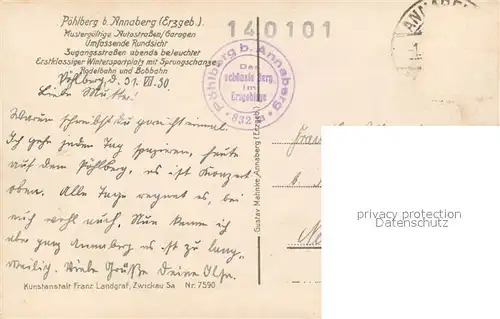 Pöhlberg b. Annaberg (Erzgeb.).
Mustergültige Autostraßen/Garagen
Umfassende Rundsicht
Zugangsstraßen abends beleuchtet
Erstklassiger Wintersportplatz mit Sprungschanze
Rodelbahn und Bobbahn
140101
Pöhlberg b. Annaberg
Der
schönste Berg
im
Erzgebirge
832 m
ANNABE
Pöhlberg, d. 31. VII. 30
Liebe Mutter!
Warum schreibst du gar nicht einmal.
Ich geh jeden Tag spazieren, heute
auf dem Pöhlberg, es ist Konzert
oben. Alle Tage regnet es, bei
euch wohl auch. Nun kenne ich
aber ganz Annaberg es ist zu lang-
weilig. Viele Grüße Deine
Gustav Mahnke, Annaberg (Erzgeb.)
Kunstanstalt Franz Landgraf, Zwickau Sa Nr. 7590
privacy protection
privacy protection